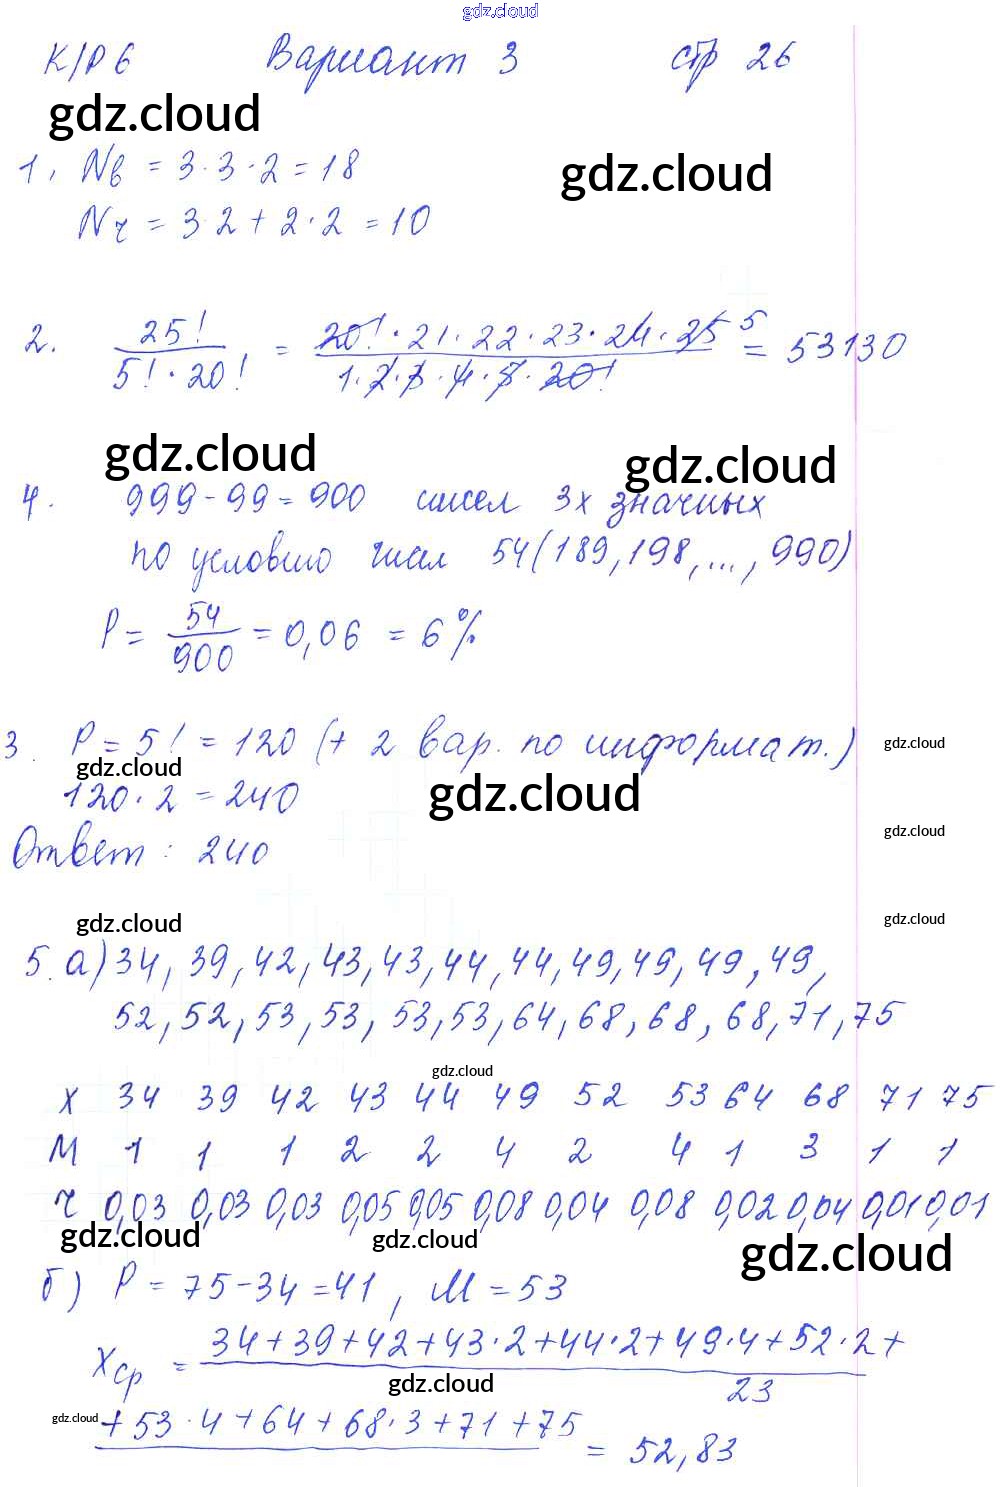 gdz.cloud
К/Р 6 Вариант 3 стр 26
gdz.cloud
1, Nв = 3·3·2 = 18
gdz.cloud
Nч = 3·2 + 2·2 = 10
2. 25! / 5!·20! = 20!·21·22·23·24·25 5 / 1·2·3·4·5·20! = 53130
gdz.cloud gdz.cloud
4. 999-99=900 чисел 3х значных
по условию чисел 54(189,198,...,990)
P = 54/900 = 0,06 = 6%
3. P = 5! = 120 (+ 2 вар. по информат.)
gdz.cloud
gdz.cloud
120·2 = 240
gdz.cloud
Ответ: 240
gdz.cloud
gdz.cloud
gdz.cloud
5. а) 34, 39, 42, 43, 43, 44, 44, 49, 49, 49, 49,
52, 52, 53, 53, 53, 53, 64, 68, 68, 68, 71, 75
gdz.cloud
X 34 39 42 43 44 49 52 53 64 68 71 75
M 1 1 1 2 2 4 2 4 1 3 1 1
ч 0,03 0,03 0,03 0,05 0,05 0,08 0,04 0,08 0,02 0,04 0,01 0,01
gdz.cloud gdz.cloud gdz.cloud
б) P = 75-34=41, M = 53
Xср = 34+39+42+43·2+44·2+49·4+52·2+
23
gdz.cloud
gdz.cloud
+53·4+64+68·3+71+75 = 52,83